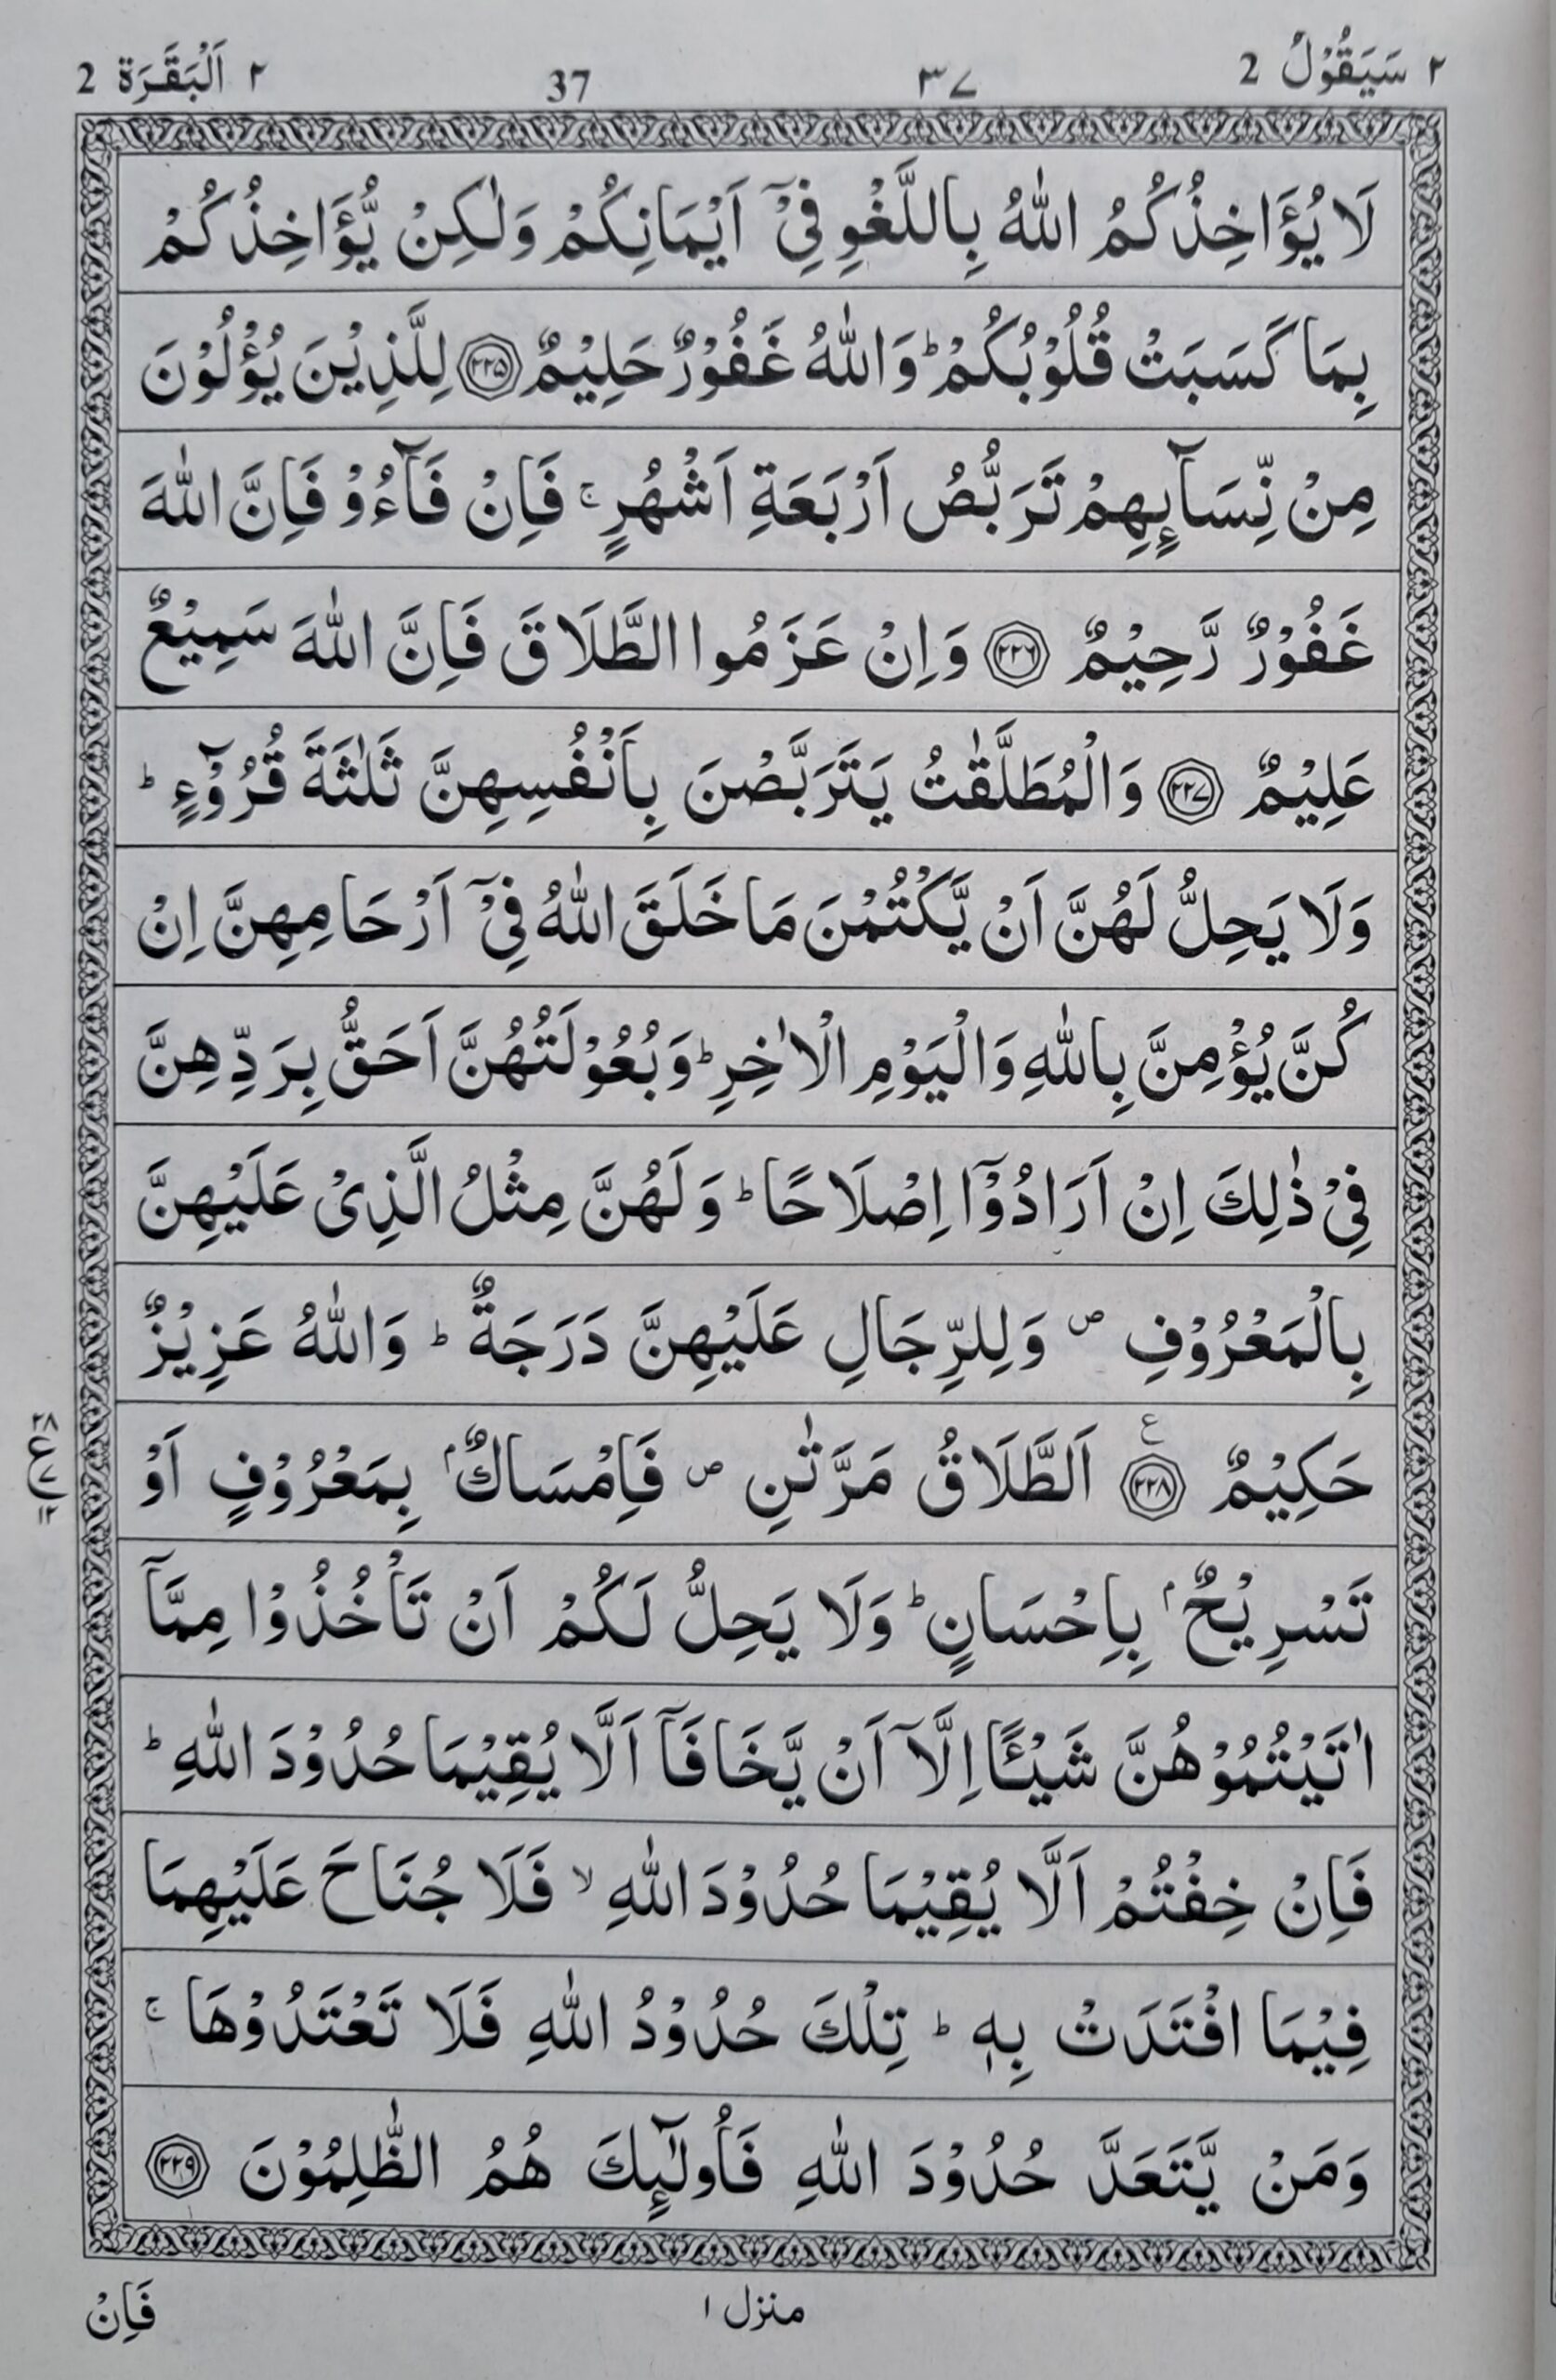 ٢ سَیَقُوْلُ 2 ٣٧ 37 ٢ اَلْبَقَرَة 2
لَا یُؤَاخِذُكُمُ اللّٰهُ بِاللَّغْوِ فِیْۤ اَیْمَانِكُمْ وَلٰكِنْ یُّؤَاخِذُكُمْ
بِمَا كَسَبَتْ قُلُوْبُكُمْ ؕ وَاللّٰهُ غَفُوْرٌ حَلِیْمٌ ﴿٢٢٥﴾ لِلَّذِیْنَ یُؤْلُوْنَ
مِنْ نِّسَآىِٕهِمْ تَرَبُّصُ اَرْبَعَةِ اَشْهُرٍ ۚ فَاِنْ فَآءُوْ فَاِنَّ اللّٰهَ
غَفُوْرٌ رَّحِیْمٌ ﴿٢٢٦﴾ وَاِنْ عَزَمُوا الطَّلَاقَ فَاِنَّ اللّٰهَ سَمِیْعٌ
عَلِیْمٌ ﴿٢٢٧﴾ وَالْمُطَلَّقٰتُ یَتَرَبَّصْنَ بِاَنْفُسِهِنَّ ثَلٰثَةَ قُرُوْٓءٍ ؕ
وَلَا یَحِلُّ لَهُنَّ اَنْ یَّكْتُمْنَ مَا خَلَقَ اللّٰهُ فِیْۤ اَرْحَامِهِنَّ اِنْ
كُنَّ یُؤْمِنَّ بِاللّٰهِ وَالْیَوْمِ الْاٰخِرِ ؕ وَبُعُوْلَتُهُنَّ اَحَقُّ بِرَدِّهِنَّ
فِیْ ذٰلِكَ اِنْ اَرَادُوْۤا اِصْلَاحًا ؕ وَلَهُنَّ مِثْلُ الَّذِیْ عَلَیْهِنَّ
بِالْمَعْرُوْفِ ۪ وَلِلرِّجَالِ عَلَیْهِنَّ دَرَجَةٌ ؕ وَاللّٰهُ عَزِیْزٌ
حَكِیْمٌ ﴿٢٢٨﴾ ع اَلطَّلَاقُ مَرَّتٰنِ ۪ فَاِمْسَاكٌۢ بِمَعْرُوْفٍ اَوْ
٢٨ ع ٧ ١٢
تَسْرِیْحٌۢ بِاِحْسَانٍ ؕ وَلَا یَحِلُّ لَكُمْ اَنْ تَاْخُذُوْا مِمَّاۤ
اٰتَیْتُمُوْهُنَّ شَیْـًٔا اِلَّاۤ اَنْ یَّخَافَاۤ اَلَّا یُقِیْمَا حُدُوْدَ اللّٰهِ ؕ
فَاِنْ خِفْتُمْ اَلَّا یُقِیْمَا حُدُوْدَ اللّٰهِ ۙ فَلَا جُنَاحَ عَلَیْهِمَا
فِیْمَا افْتَدَتْ بِهٖ ؕ تِلْكَ حُدُوْدُ اللّٰهِ فَلَا تَعْتَدُوْهَا ۚ
وَمَنْ یَّتَعَدَّ حُدُوْدَ اللّٰهِ فَاُولٰٓىِٕكَ هُمُ الظّٰلِمُوْنَ ﴿٢٢٩﴾
منزل ١ فَاِنْ